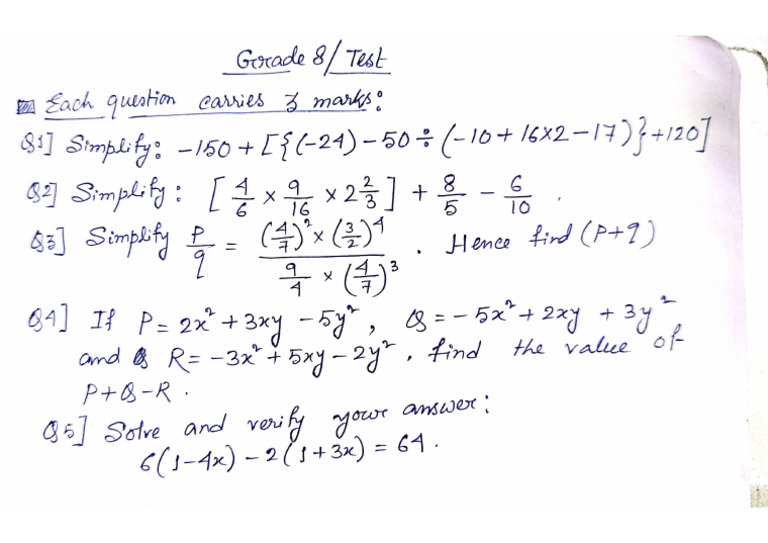 Grade 8/ Test
Each question carries 3 marks:
Q1] Simplify: -150 + [{(-24) - 50 ÷ (-10 + 16×2 - 17)} + 120]
Q2] Simplify: [4/6 × 9/16 × 2 2/3] + 8/5 - 6/10 .
Q3] Simplify P/q = ((4/7)² × (3/2)⁴) / (9/4 × (4/7)³) . Hence find (P+q)
Q4] If P = 2x² + 3xy - 5y² , Q = - 5x² + 2xy + 3y²
and R = -3x² + 5xy - 2y² . find the value of
P+Q-R .
Q5] Solve and verify your answer:
6(1-4x) - 2(1+3x) = 64 .